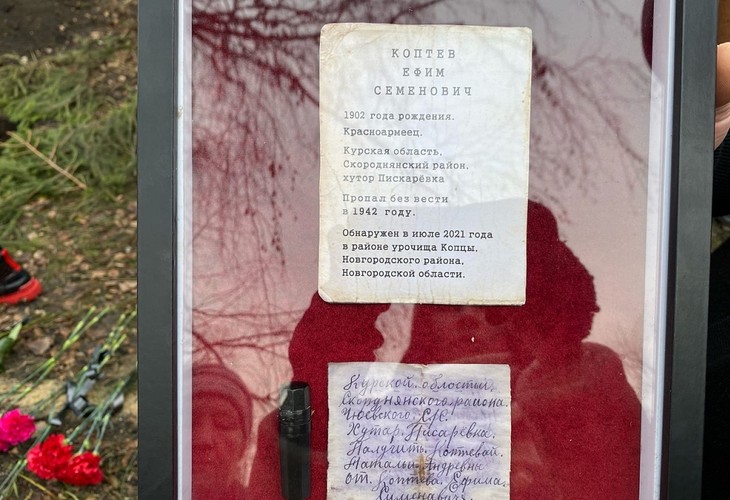 КОПТЕВ
ЕФИМ
СЕМЕНОВИЧ
1902 года рождения.
Красноармеец.
Курская область,
Скороднянский район,
хутор Пискарёвка
Пропал без вести
в 1942 году.
Обнаружен в июле 2021 года
в районе урочища Копцы,
Новгородского района,
Новгородской области.
Курской. области.
Скороднянского. района.
С/С.
Хутар. Писаревка.
Палучить. Коптевай.
Натальи Андревны
От. Коптева. Ефима.
Сименавичь.